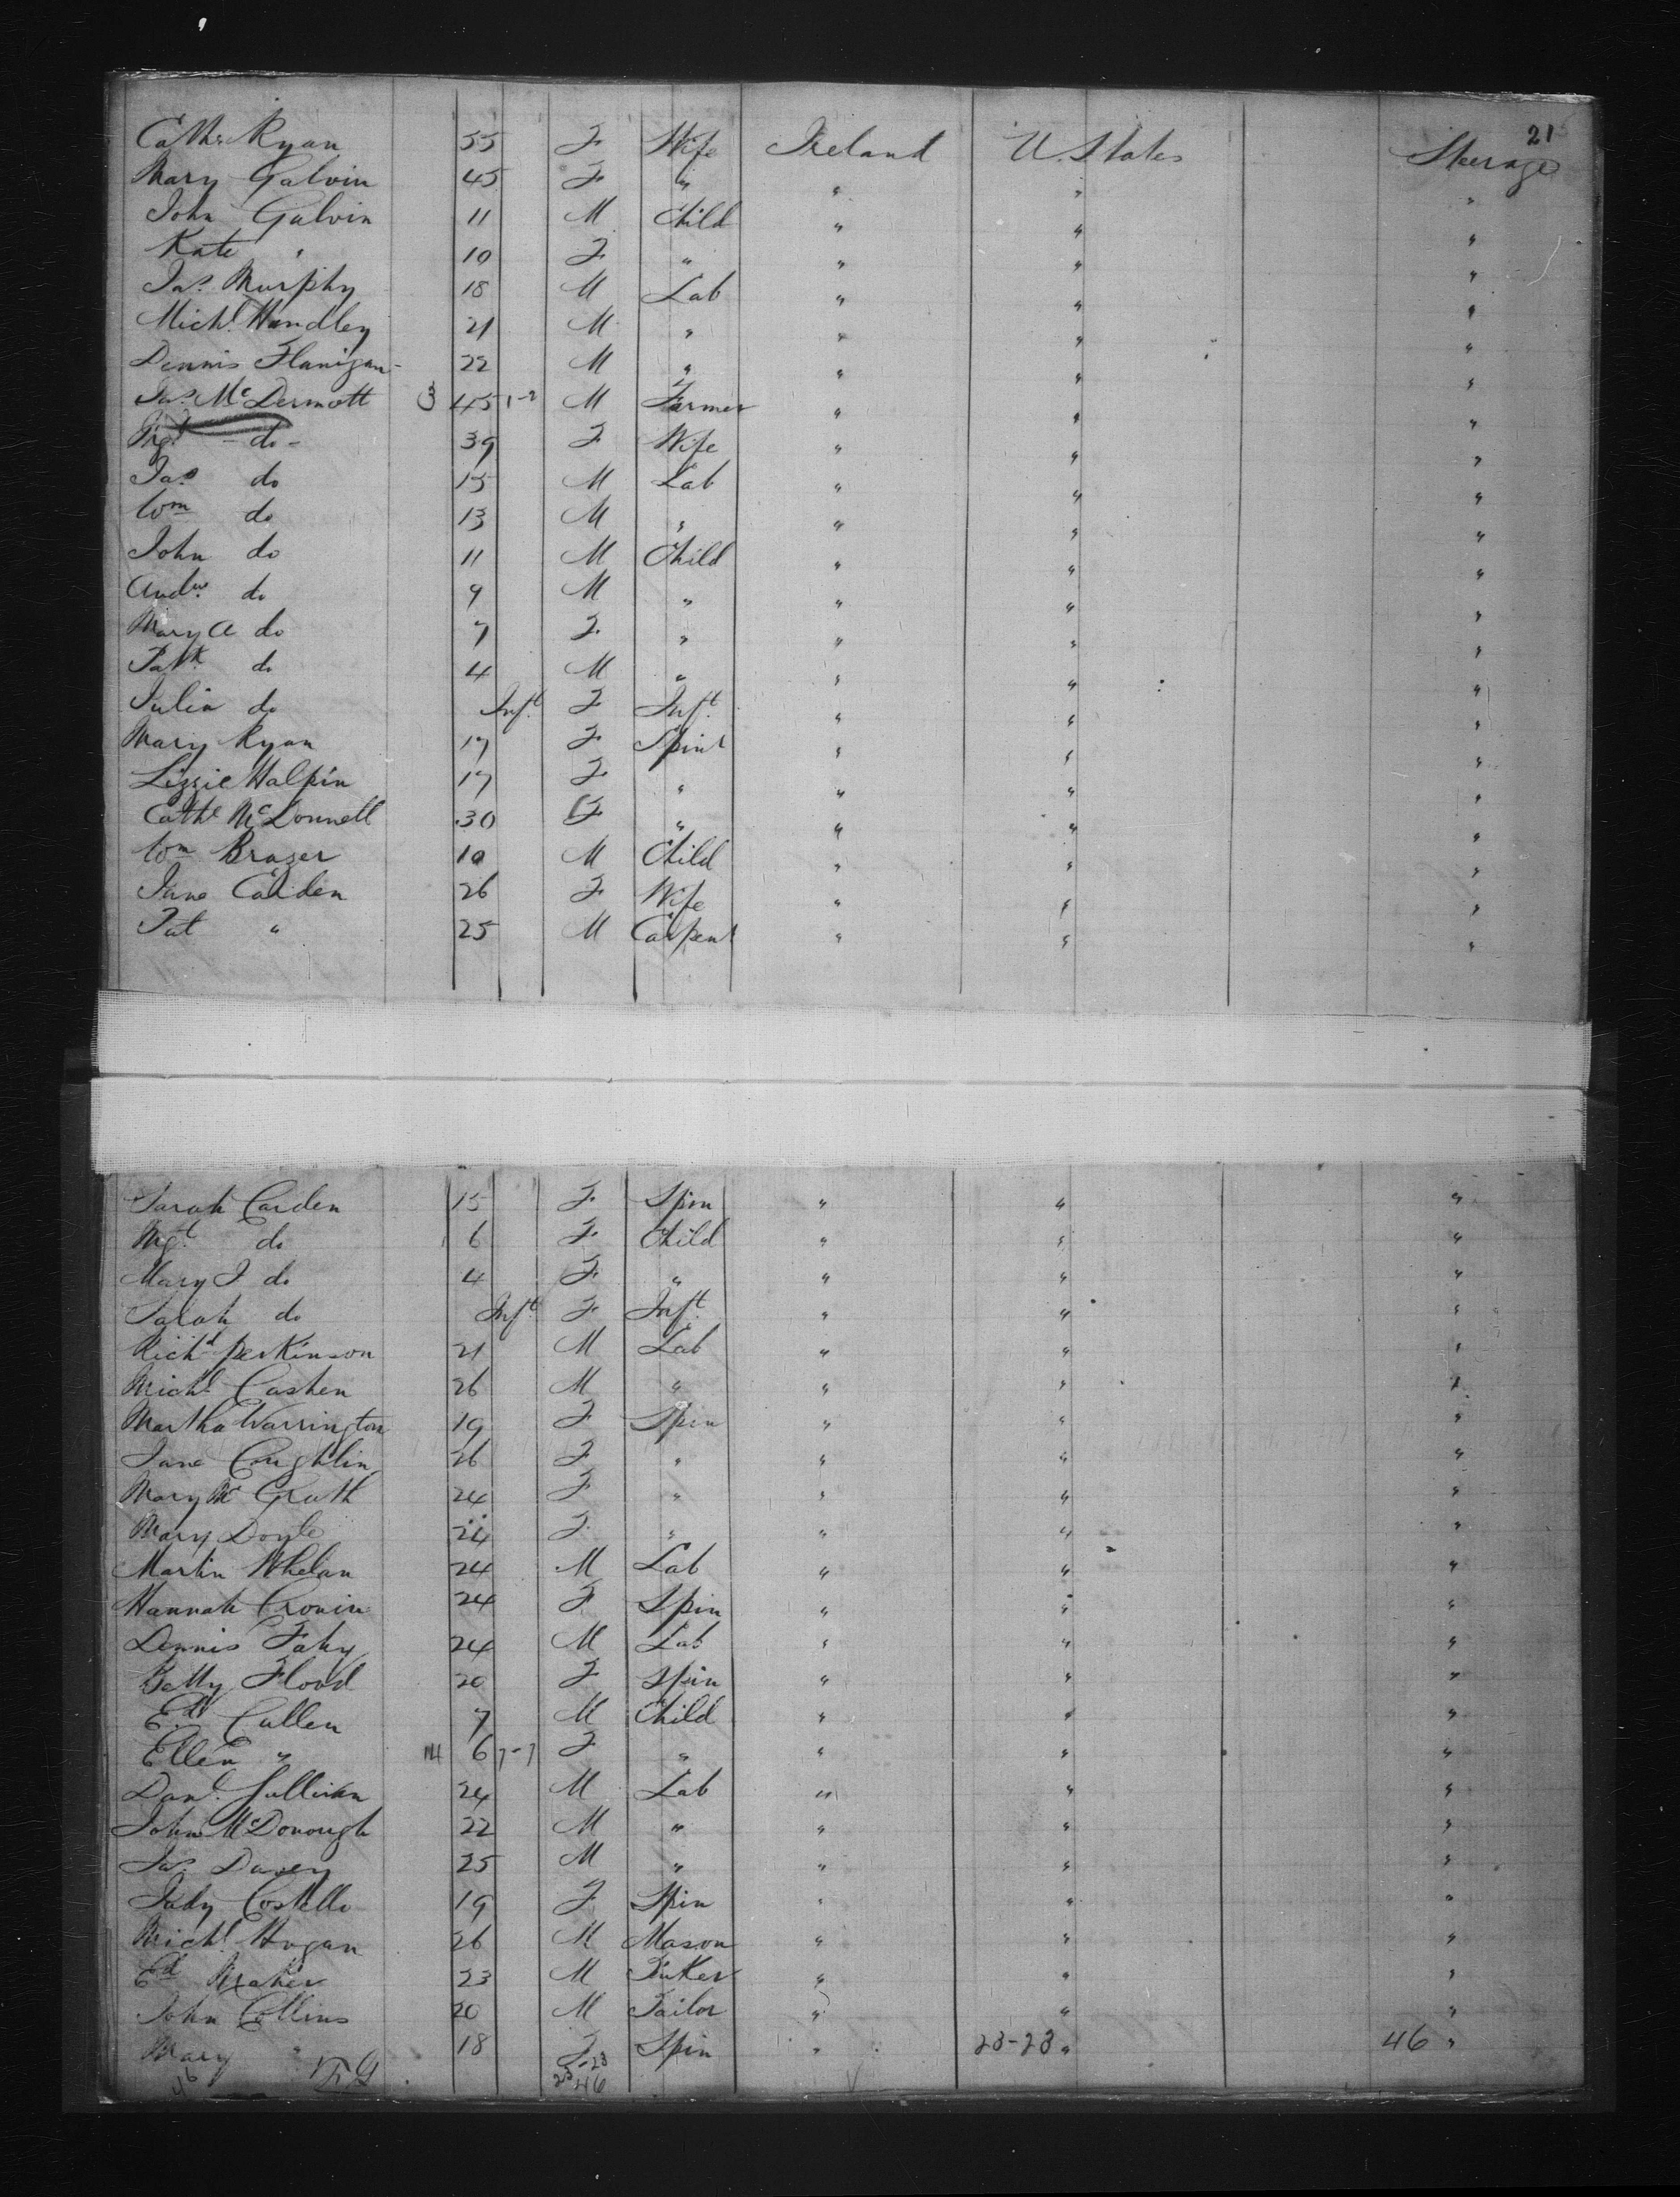 21
Cathe Ryan 55 F Wife Ireland U. States Steerage
Mary Galvin 45 F " " " "
John Galvin 11 M Child " " "
Kate " 10 F " " " "
Jas. Murphy 18 M Lab " " "
Michl. Handley 21 M " " " "
Dennis Flanigan 22 M " " " "
Jas. McDermott 3 45 M Farmer " " "
Mgt. - do - 39 F Wife " " "
Jas do 15 M Lab " " "
Wm do 13 M " " " "
John do 11 M Child " " "
Andw. do 9 M " " " "
Mary A do 7 F " " " "
Patk. do 4 M " " " "
Julia do Inft. F Inft. " " "
Mary Ryan 17 F Spinr " " "
Lizzie Halpin 17 F " " " "
Cathe McDonnell 30 F " " " "
Wm Brazer 10 M Child " " "
Jane Carden 26 F Wife " " "
Pat " 25 M Carpenr " " "
Sarah Carden 15 F Spin " " "
Mgt. do 6 F Child " " "
Mary J do 4 F " " " "
Sarah do Inft. F Inft. " " "
Richd Perkinson 21 M Lab " " "
Michl Cashen 26 M " " " "
Martha Warrington 19 F Spin " " "
Jane Coughlin 26 F " " " "
Mary Mc Grath 24 F " " " "
Mary Doyle 24 F " " " "
Martin Whelan 24 M Lab " " "
Hannah Cronin 24 F Spin " " "
Dennis Fahy 24 M Lab " " "
Betty Flood 20 F Spin " " "
Ed. Cullen 7 M Child " " "
Ellen " 14 6 7-7 F " " " "
Danl. Sullivan 24 M Lab " " "
John McDonough 22 M " " " "
Jas. Davey 25 M " " " "
Judy Costello 19 F Spin " " "
Michl. Hogan 26 M Mason " " "
Ed Maher 23 M Tinker " " "
John Collins 20 M Tailor " " "
Mary " 18 F Spin " 23-23 " 46 "
46 23-23
46